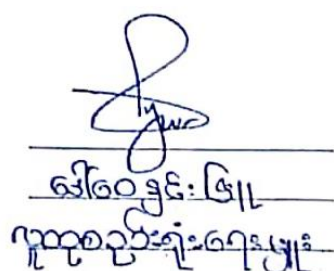 ဒေါ်ဝေနှင်းဖြူ
လူထုစည်းရုံးရေးမှူး